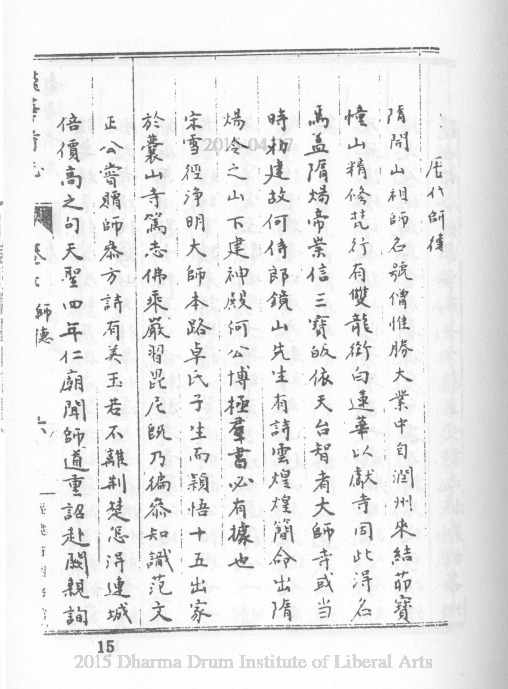 歷代師傳
隋開山祖師名號僧惟勝大業中自潤州來結茆寶
幢山精修梵行有雙龍銜白蓮華以獻寺因此得名
焉盖隋煬帝崇信三寶皈依天台智者大師寺或當
時初建故何侍郎鏡山先生有詩雲煌煌簡命出隋
煬令之山下建神殿何公博極羣書必有據也
宋雪徑淨明大師本路卓氏子生而穎悟十五出家
於囊山寺篤志佛乘嚴習毘尼既乃徧叅知識范文
正公嘗贈師叅方詩有美玉若不離荆楚怎得連城
倍價高之句天聖四年仁廟聞師道重詔赴闕親詢
蓮華寺志 卷 師德 六
15
2015 Dharma Drum Institute of Liberal Arts